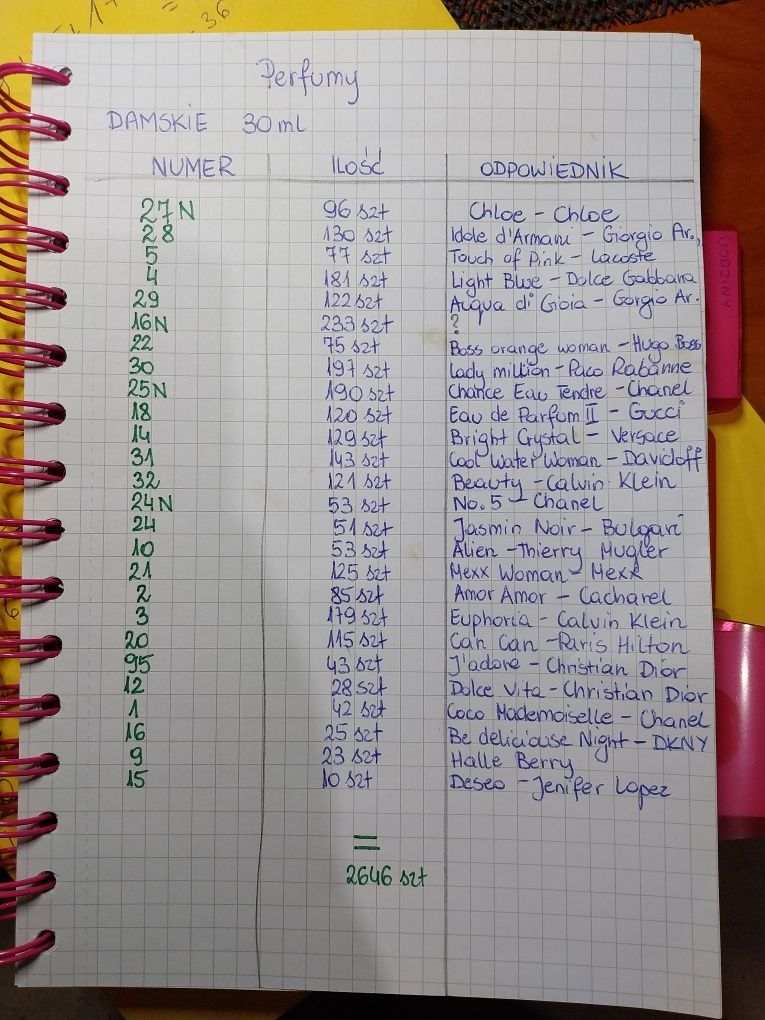 Perfumy
DAMSKIE 30ml
NUMER ILOŚĆ ODPOWIEDNIK
27N 96 szt Chloe - Chloe
28 130 szt Idole d'Armani - Giorgio Ar.
5 77 szt Touch of Pink - Lacoste
4 181 szt Light Blue - Dolce Gabbana
29 122 szt Acqua di Gioia - Gorgio Ar.
16N 233 szt ?
22 75 szt Boss orange woman - Hugo Boss
30 197 szt Lady million - Paco Rabanne
25N 190 szt Chance Eau Tendre - Chanel
18 120 szt Eau de Parfum II - Gucci
14 129 szt Bright Crystal - Versace
31 143 szt Cool Water Woman - Davidoff
32 121 szt Beauty - Calvin Klein
24N 53 szt No. 5 - Chanel
24 51 szt Jasmin Noir - Bulgari
10 53 szt Alien - Thierry Mugler
21 125 szt Mexx Woman - Mexx
2 85 szt Amor Amor - Cacharel
3 179 szt Euphoria - Calvin Klein
20 115 szt Can Can - Paris Hilton
95 43 szt J'adore - Christian Dior
12 28 szt Dolce Vita - Christian Dior
1 42 szt Coco Mademoiselle - Chanel
16 25 szt Be deliciouse Night - DKNY
9 23 szt Halle Berry
15 10 szt Deseo - Jenifer Lopez
=
2646 szt
GODZINY